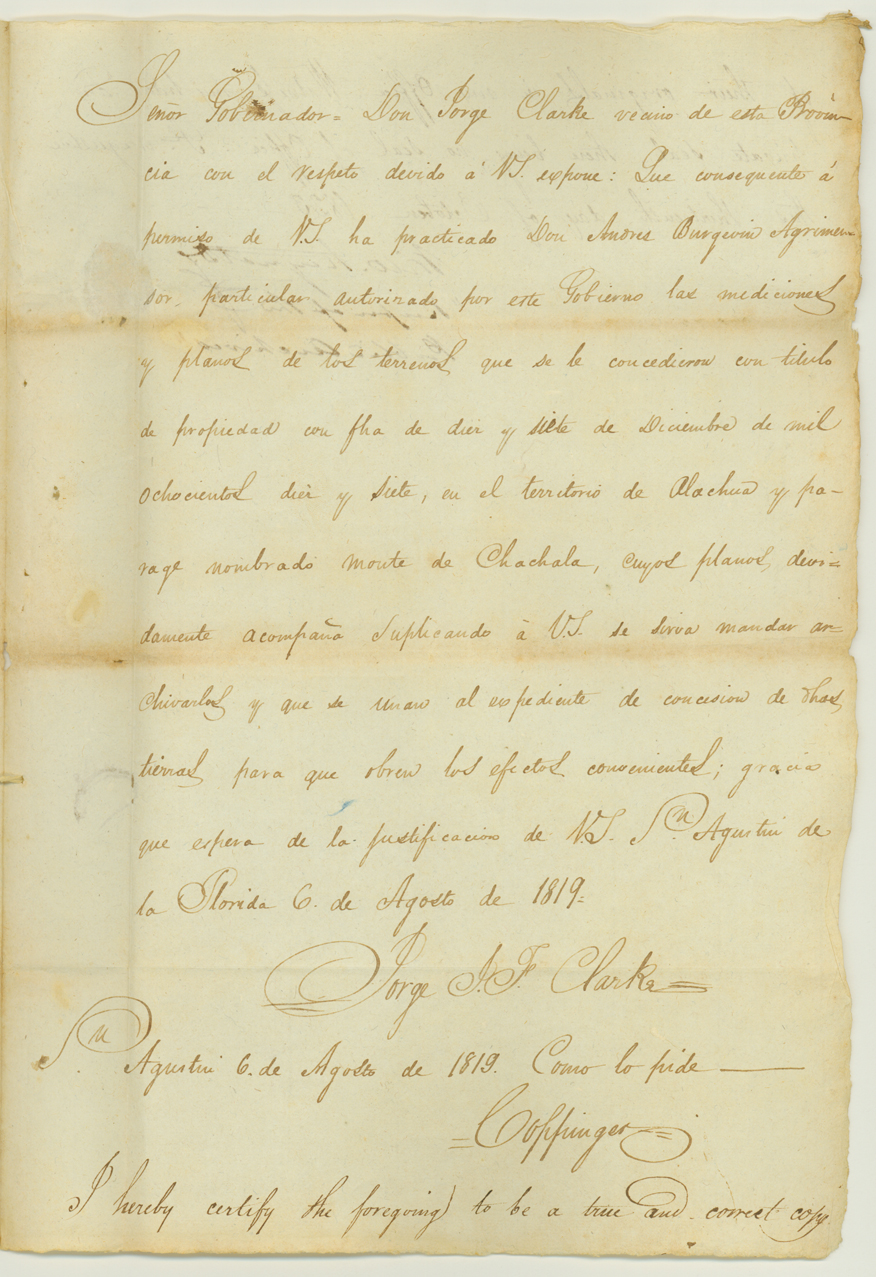 Señor Gobernador= Don Jorge Clarke vecino de esta Provin-
cia con el respeto devido á V.S. expone: Que consequente á
permiso de V.S. ha practicado Don Andres Burgevin Agrimen-
sor, particular autorizado, por este Gobierno las mediciones
y planos de los terrenos que se le concedieron con titulo
de propiedad con fha de diez y siete de Diciembre de mil
ochocientos diez y siete, en el territorio de Alachua y pa-
rage nombrado monte de Chachala, cuyos planos, devi-
damente acompaña suplicando á V.S. se sirva mandar ar-
chivarlos y que se unan al expediente de concesion de dhas,
tierras para que obren los efectos convenientes; gracia
que espera de la justificacion de V.S. Sn. Agustin de
la Florida 6. de Agosto de 1819=
Jorge J. F. Clarke=
Sn. Agustin 6. de Agosto de 1819. Como lo pide —
=Coppinger=
I hereby certify the foregoing to be a true and correct copy